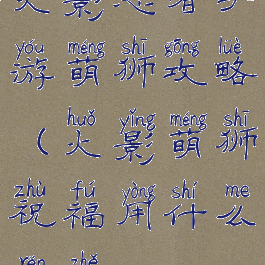 火影忍者手
yóu méng shī gōng lüè
游萌狮攻略
huǒ yǐng méng shī
（火影萌狮
zhù fú yòng shí me
祝福用什么
rěn zhě